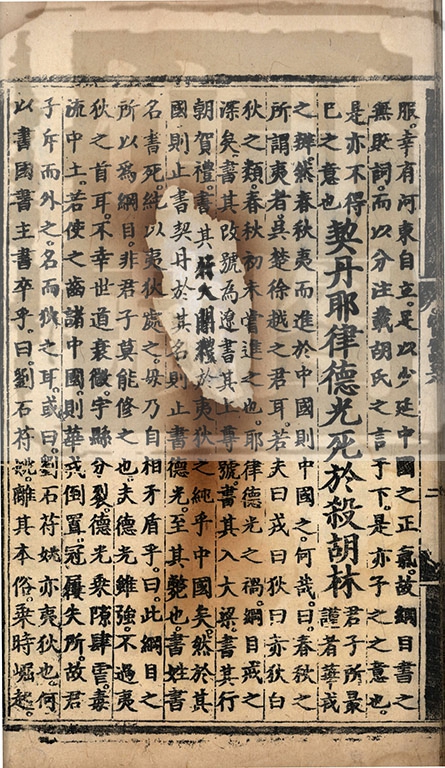 服。幸有河東自立。足以少延中國之正氣。故綱目書之
無貶詞。而以分注載胡氏之言于下。是亦予之之意也。
是亦不得
已之意也
契丹耶律德光死於殺胡林
君子所最
謹者華戎
之辨。然春秋夷而進於中國則中國之。何哉。曰。春秋之
所謂夷者。吳楚徐越之君耳。若夫曰戎曰狄曰亦狄白
狄之類。春秋初未嘗進之也。耶律德光之禍。綱目戒之
深矣。書其改號為遼。書其上尊號。書其入大梁。書其行
朝賀禮。書其行入閤禮。於夷狄之純乎中國矣。然於其
國則止書契丹。於其名則止書德光。至其斃也。書姓書
名書死。純以夷狄處之。毋乃自相矛盾乎。曰。此綱目之
所以為綱目。非君子莫能修之也。夫德光雖強。不過夷
狄之首耳。不幸世道衰微。宇縣分裂。德光乘隙肆虐。毒
流中土。若使之齒諸中國。則華戎倒置。冠履失所。故君
子斥而外之。名而狄之耳。或曰。劉石符姚亦夷狄也。何
以書國書主書卒乎。曰。劉石符姚。離其本俗。乘時崛起。